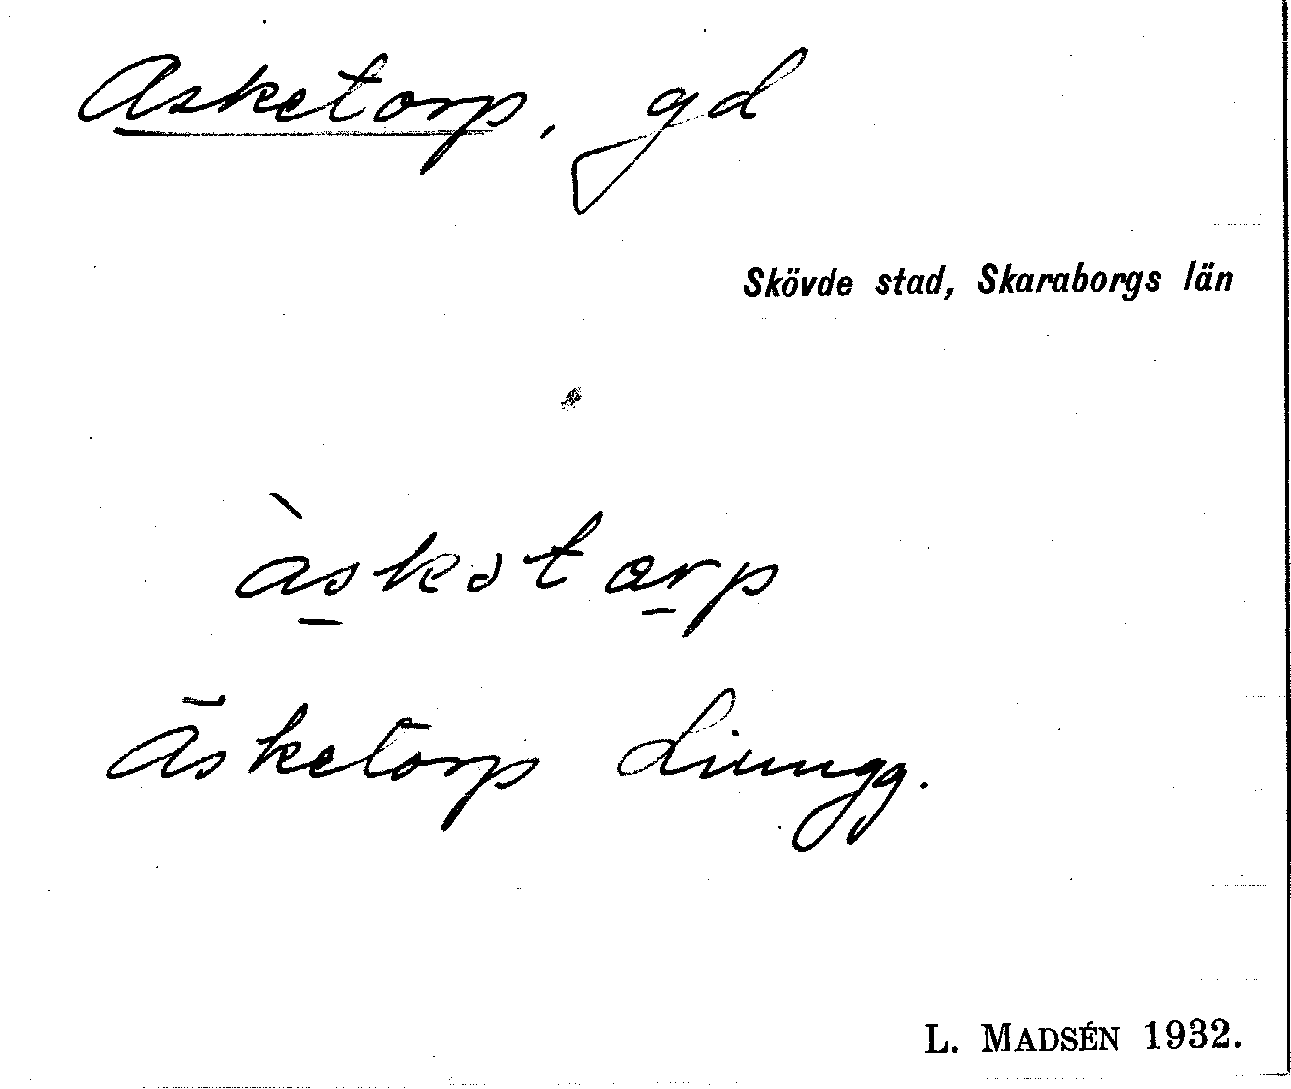 Asketorp, gd
Skövde stad, Skaraborgs län
àskətærp
Āsketorp Ljungg.
L. MADSÉN 1932.